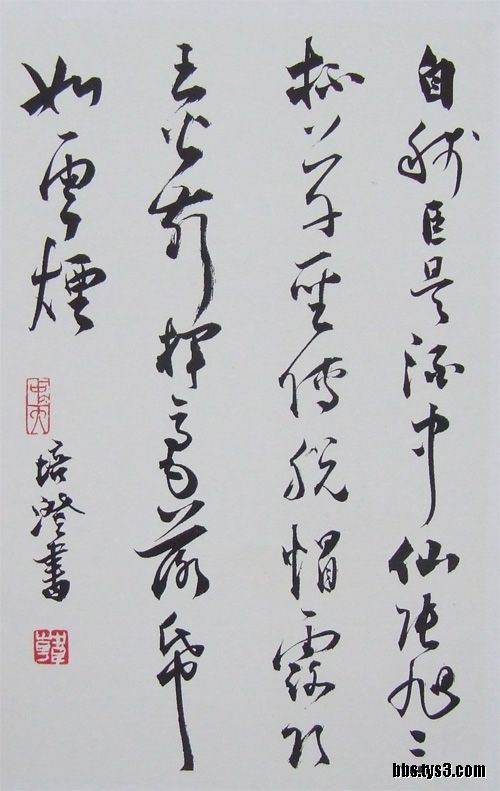 自稱臣是酒中仙張旭三
杯草聖傳脫帽露頂
王公前揮毫落帋
如雲煙
培澄書
bbs.tys3.com